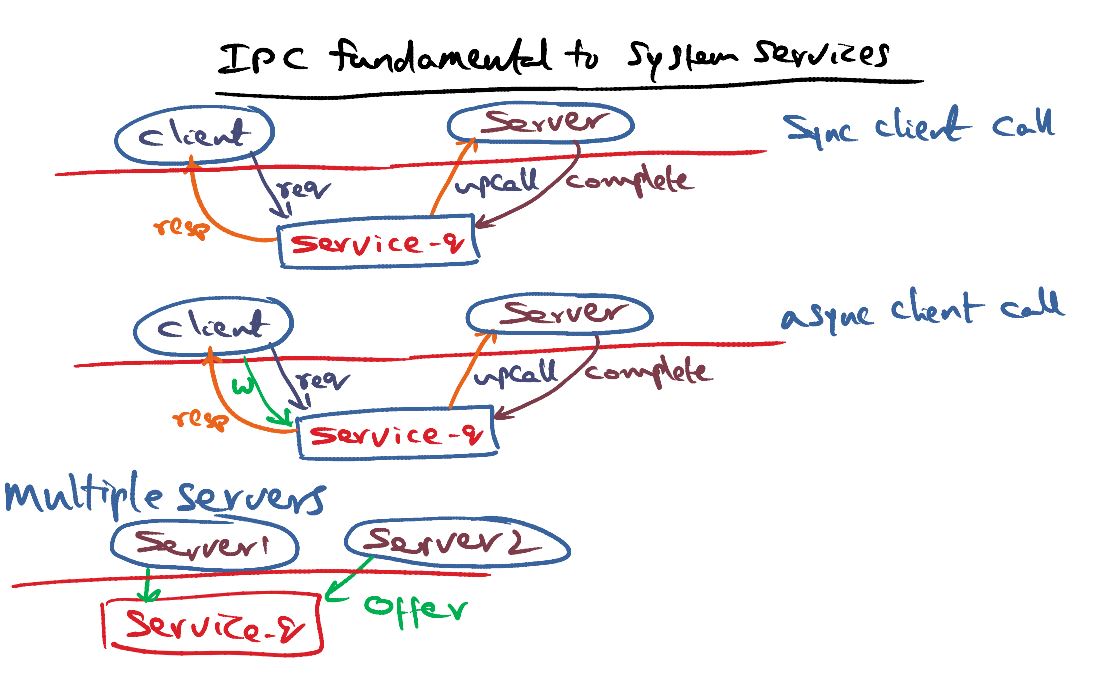 IPC fundamental to System Services
client
Server
Sync client call
req
upcall
complete
resp
Service-q
client
Server
async client call
w
req
upcall
complete
resp
Service-q
multiple servers
Server1
Server2
Offer
Service-q